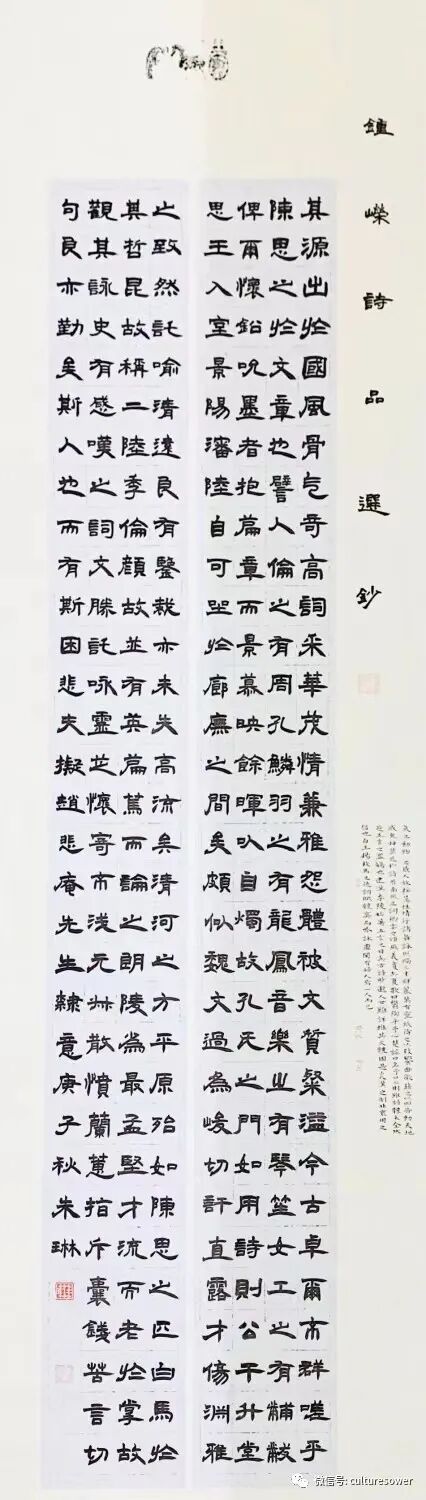 鍾嶸詩品選鈔
其源出於國風骨气奇高詞采華茂情兼雅怨體被文質粲溢今古卓爾不群嗟乎
陳思之於文章也譬人倫之有周孔鱗羽之有龍鳳音樂之有琴笙女工之有黼黻
俾爾懷鉛吮墨者抱篇章而景慕映餘暉以自燭故孔氏之門如用詩則公干升堂
思王入室景陽潘陸自可坐於廊廡之間矣頗似魏文過為峻切訐直露才傷淵雅
之致然託喻清遠良有鑒裁亦未失高流矣清河之方平原殆如陳思之匹白馬於
其哲昆故稱二陸季倫顏故並有英篇篤而論之朗陵為最孟堅才流而老於掌故
觀其詠史有感嘆之詞文勝託咏靈芝懷寄不淺元叔散憤蘭蕙指斥囊錢苦言切
句良亦勤矣斯人也而有斯困悲夫擬趙悲庵先生隸意庚子秋朱琳
微信号: culturesower